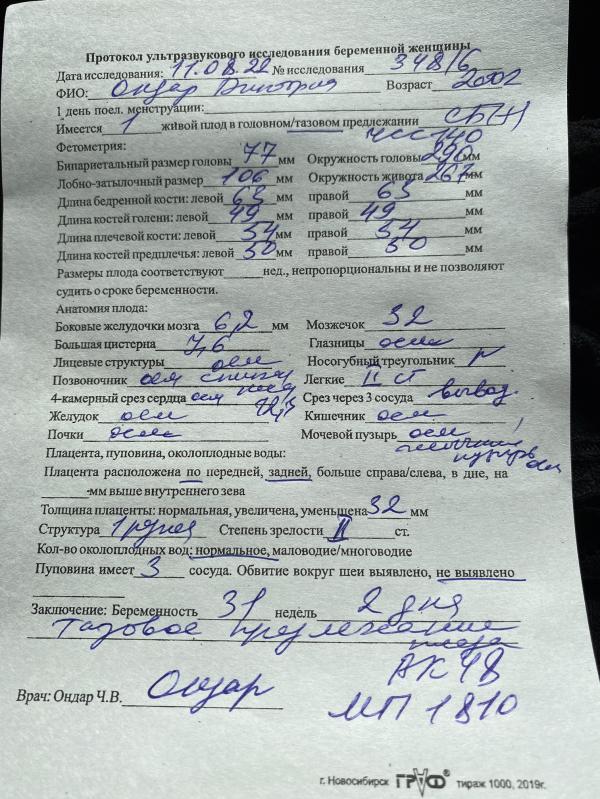 Протокол ультразвукового исследования беременной женщины
Дата исследования: 11.08.22 № исследования 348/6
ФИО: Ондар Возраст 2002
1 день посл. менструации:
Имеется 1 живой плод в головном/тазовом предлежании СБ(+)
ЧСС 140
Фетометрия:
Бипариетальный размер головы 77 мм Окружность головы 290 мм
Лобно-затылочный размер 106 мм Окружность живота 267 мм
Длина бедренной кости: левой 63 мм правой 63 мм
Длина костей голени: левой 49 мм правой 49 мм
Длина плечевой кости: левой 54 мм правой 54 мм
Длина костей предплечья: левой 50 мм правой 50 мм
Размеры плода соответствуют нед., непропорциональны и не позволяют
судить о сроке беременности.
Анатомия плода:
Боковые желудочки мозга 6,2 мм Мозжечок 32
Большая цистерна 7,6 Глазницы осм
Лицевые структуры осм Носогубный треугольник N
Позвоночник осм Легкие II ст
4-камерный срез сердца осм Срез через 3 сосуда вывод
Желудок осм Кишечник осм
Почки осм Мочевой пузырь осм
желчный
пузырь осм
Плацента, пуповина, околоплодные воды:
Плацента расположена по передней, задней, больше справа/слева, в дне, на
-мм выше внутреннего зева
Толщина плаценты: нормальная, увеличена, уменьшена 32 мм
Структура Степень зрелости II ст.
Кол-во околоплодных вод: нормальное, маловодие/многоводие
Пуповина имеет 3 сосуда. Обвитие вокруг шеи выявлено, не выявлено
Заключение: Беременность 31 недель 2 дня
тазовое предлежание
плода
АК 48
Врач: Ондар Ч.В. Ондар
МП 1810
г. Новосибирск ГРАФ® тираж 1000, 2019г.